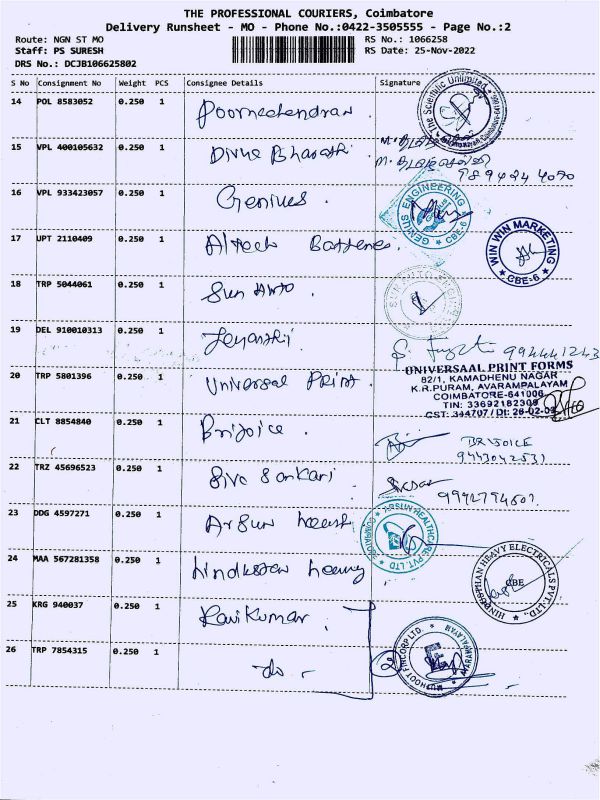 THE PROFESSIONAL COURIERS, Coimbatore
Delivery Runsheet - MO - Phone No.:0422-3505555 - Page No.:2
Route: NGN ST MO RS No.: 1066258
Staff: PS SURESH RS Date: 25-Nov-2022
DRS No.: DCJB106625802
S No Consignment No Weight PCS Consignee Details Signature
14 POL 8583052 0.250 1 Poornachandran.
The Scientific Unlimited
15 VPL 400105632 0.250 1 Divya Bharathi
16 VPL 933423057 0.250 1 Genius.
GENIUS ENGINEERING CBE-6
17 UPT 2110409 0.250 1 Altech Batteries.
WIN WIN MARKETING CBE-6
18 TRP 5044061 0.250 1 Sun Auto.
19 DEL 910010313 0.250 1
20 TRP 5801396 0.250 1 Universal Print.
UNIVERSAAL PRINT FORMS
82/1, KAMADHENU NAGAR
K.R.PURAM, AVARAMPALAYAM
COIMBATORE-641006
TIN: 33692182309
21 CLT 8854840 0.250 1 Brijoice.
BRIJOICE
9443042531
22 TRZ 45696523 0.250 1 Siva Sankari.
23 DDG 4597271 0.250 1 Arsun
ARSUN HEALTHCARE PVT. LTD
24 MAA 567281358 0.250 1 Hindustan Heavy
HINDUSPHAN HEAVY ELECTRICALS PVT. LTD., CBE
25 KRG 940037 0.250 1 Ravikumar.
26 TRP 7854315 0.250 1 do -
MUTHOOT FINCORP LTD. AVARAMPALAYAM